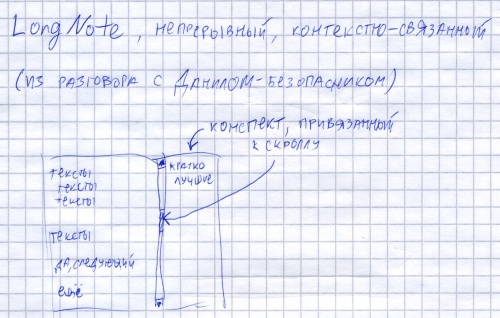 LongNote, непрерывный, контекстно-связанный
(из разговора с Данилом-безопасником)
конспект, привязанный
к скроллу
кратко
лучшее
тексты
тексты
тексты
тексты
да, следующий
ещё